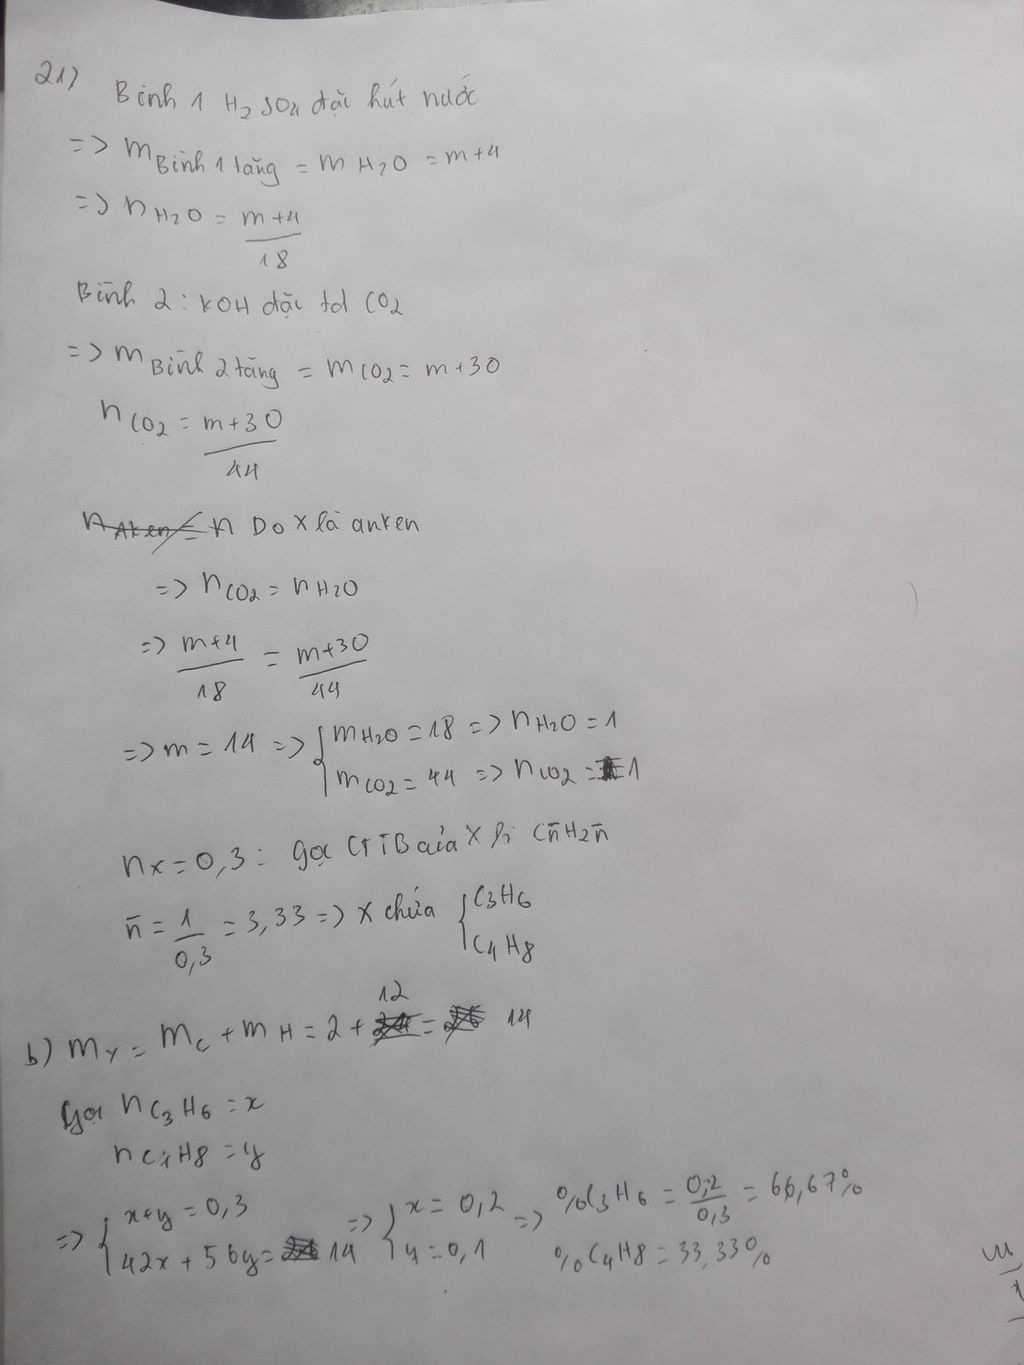 21)
Bình 1 H2SO4 đặc hút nước
=> m Bình 1 tăng = m H2O = m+4
=> n H2O = m+4 / 18
Bình 2: KOH đặc td CO2
=> m Bình 2 tăng = m CO2 = m+30
n CO2 = m+30 / 44
Do X là anken
=> n CO2 = n H2O
=> m+4 / 18 = m+30 / 44
=> m = 14 => { m H2O = 18 => n H2O = 1
m CO2 = 44 => n CO2 = 1
n X = 0,3: gọi CTTB của X là Cn̄H2n̄
n̄ = 1 / 0,3 = 3,33 => X chứa { C3H6
C4H8
b) m Y = m C + m H = 2 + 12 = 14
Gọi n C3H6 = x
n C4H8 = y
=> { x+y = 0,3
42x + 56y = 14
=> { x = 0,2
y = 0,1
=> %C3H6 = 0,2 / 0,3 = 66,67%
%C4H8 = 33,33%